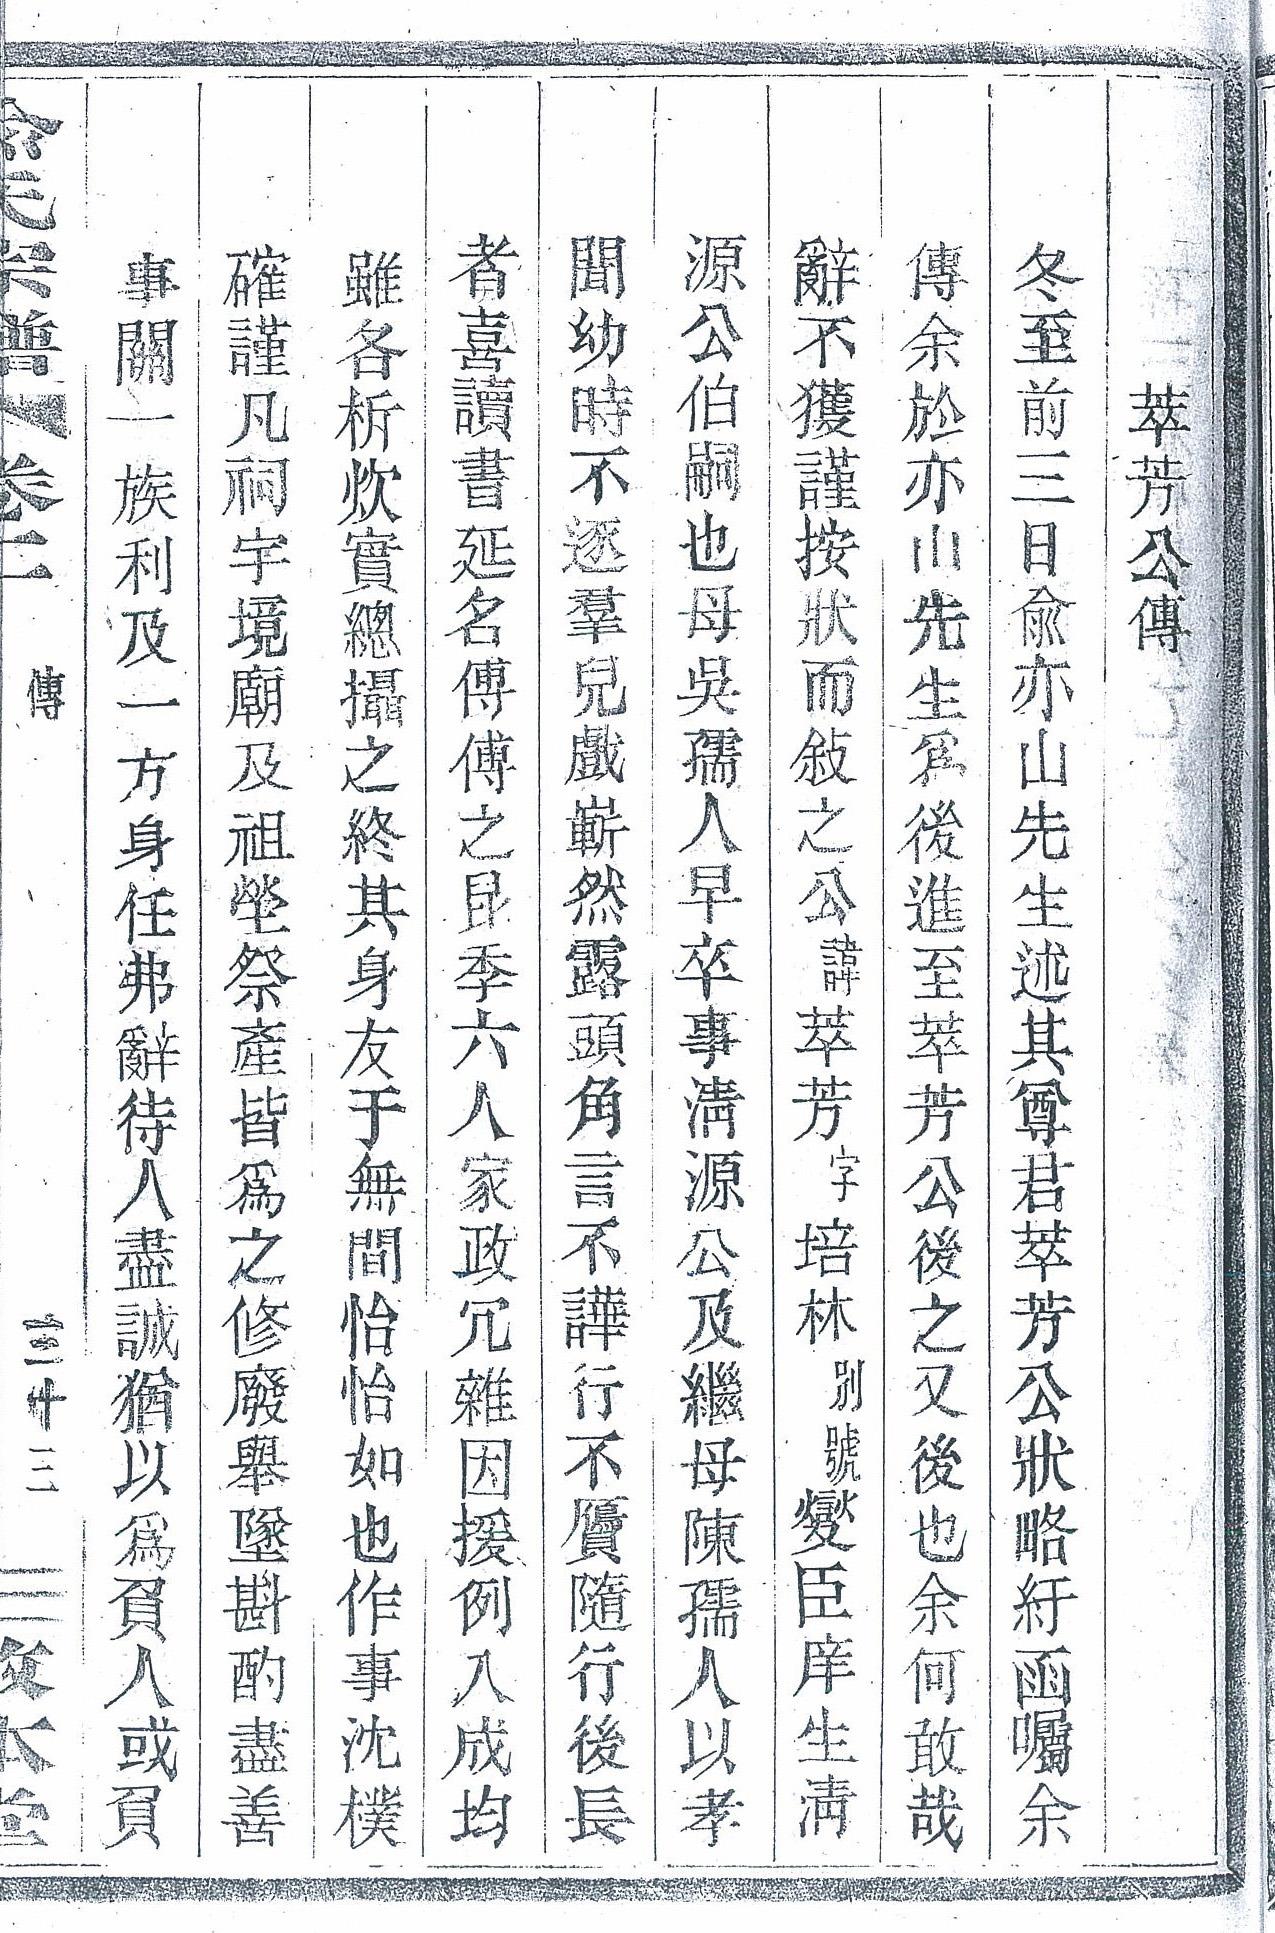 萃芳公傳
冬至前三日俞亦山先生述其尊君萃芳公狀略紆函囑余
傳余於亦山先生爲後進至萃芳公後之又後也余何敢哉
辭不獲謹按狀而敍之公諱萃芳字培林別號燮臣庠生淸
源公伯嗣也母吳孺人早卒事淸源公及繼母陳孺人以孝
聞幼時不逐羣兒戲嶄然露頭角言不譁行不贗隨行後長
者喜讀書延名傅傅之昆季六人家政冗雜因援例入成均
雖各析炊實總攝之終其身友于無間怡怡如也作事沈樸
確謹凡祠宇境廟及祖塋祭產皆爲之修廢舉墜斟酌盡善
事關一族利及一方身任弗辭待人盡誠猶以爲負人或負
俞氏宗譜 卷二 傳 三十三 敦本堂